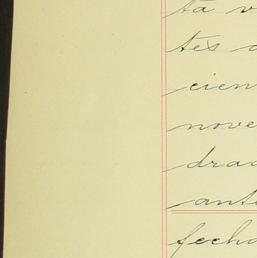 ta v
tés
cien
nove
drad
ante
fecha